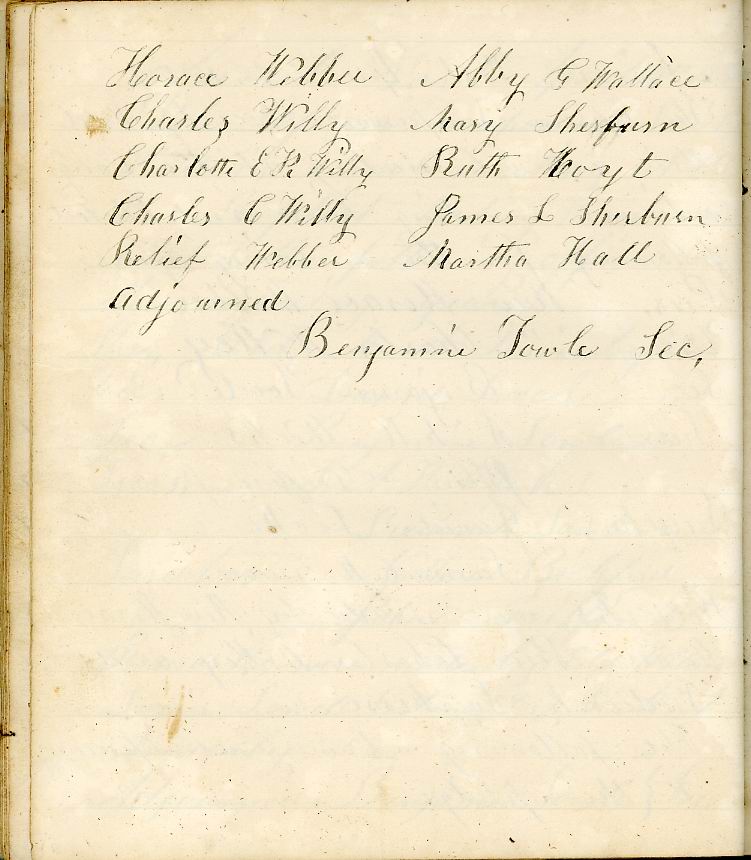 Horace Webber Abby G Wallace
Charles Willy Mary Sherburn
Charlotte E R Willy Ruth Hoyt
Charles C Willy James L Sherburn
Relief Webber Martha Hall
Adjourned
Benjamine Towle Sec,